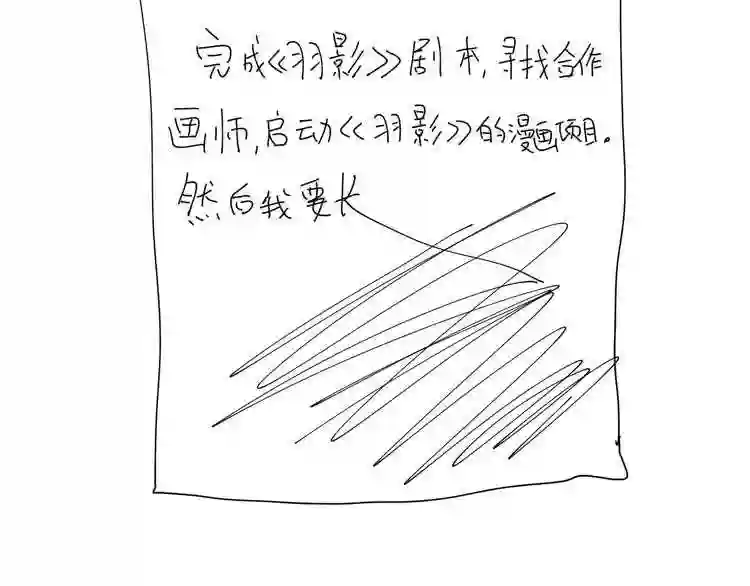 完成《羽影》剧本,寻找合作
画师,启动《羽影》的漫画项目。
然后我要长